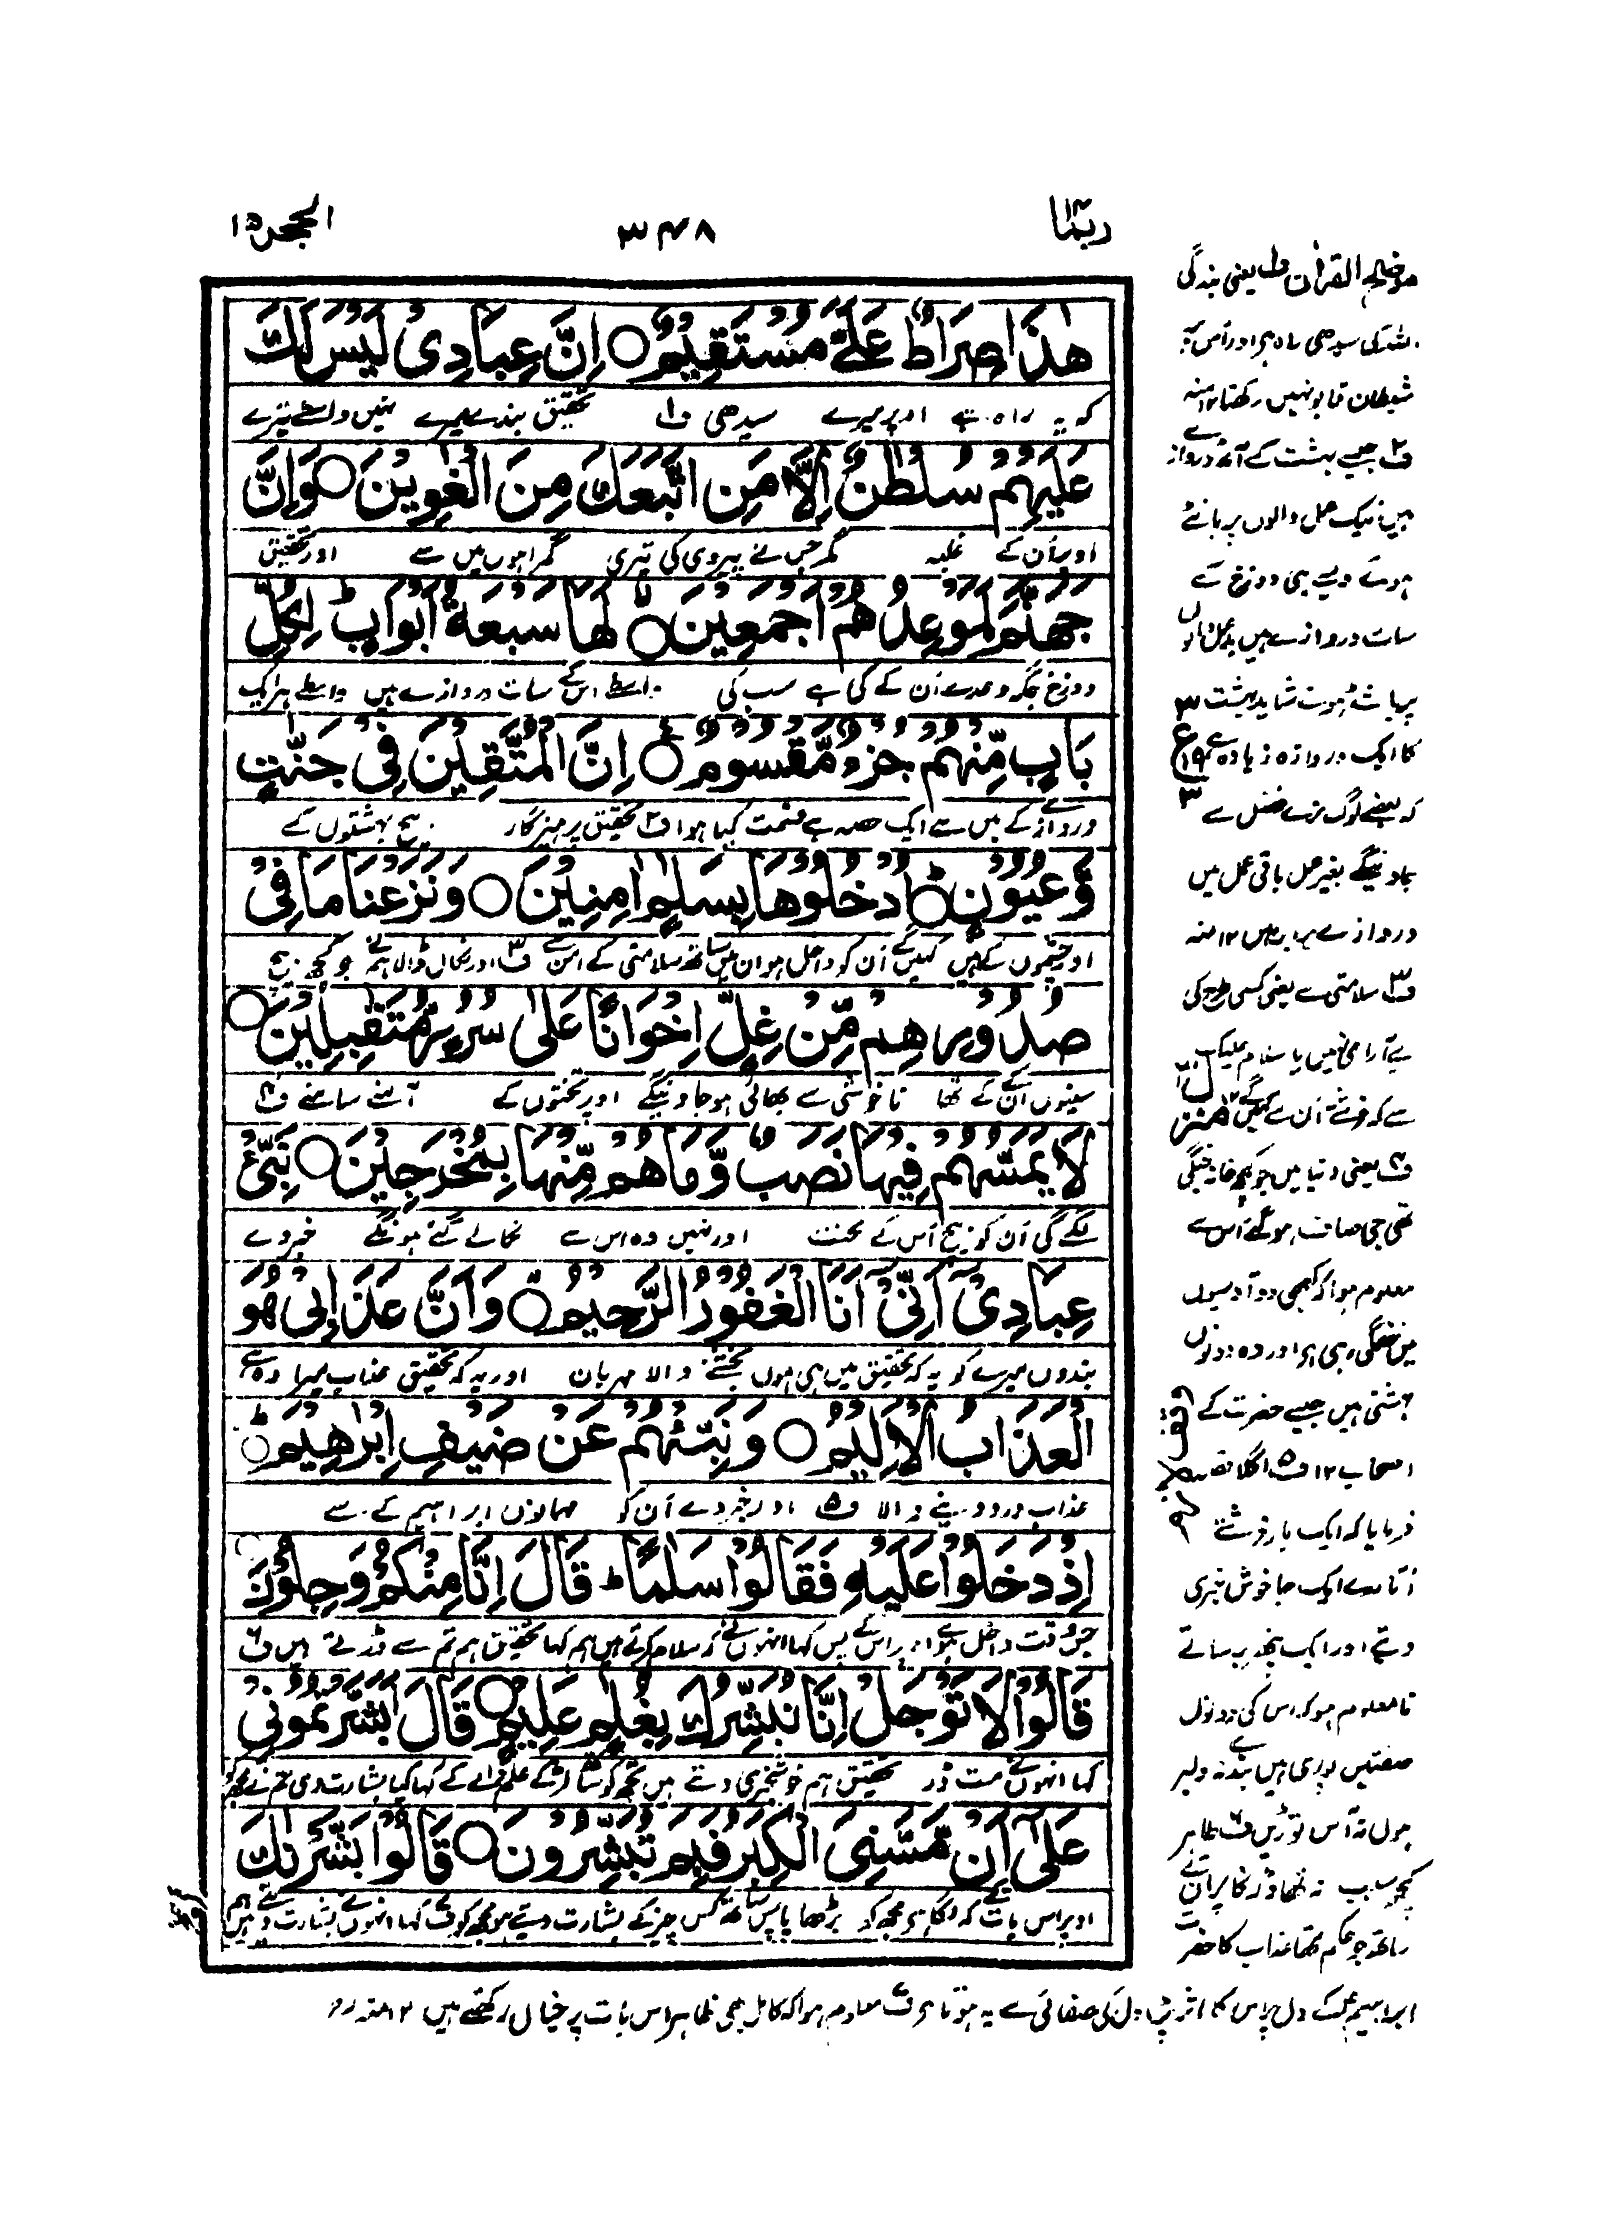 ربما ١٤
٣٤٨
الحجر ١٥
هٰذَا صِرَاطٌ عَلَیَّ مُسْتَقِیْمٌ ○ اِنَّ عِبَادِیْ لَیْسَ لَكَ
کہ یہ راہ ہے اوپر میرے سیدھی ف۱ تحقیق بندے میرے نہیں واسطے تیرے
عَلَیْهِمْ سُلْطٰنٌ اِلَّا مَنِ اتَّبَعَكَ مِنَ الْغٰوِیْنَ ○ وَاِنَّ
اوپر اُن کے غلبہ مگر جس نے پیروی کی تیری گمراہوں میں سے اور تحقیق
جَهَنَّمَ لَمَوْعِدُهُمْ اَجْمَعِیْنَ ○ لَهَا سَبْعَةُ اَبْوَابٍ ؕ لِكُلِّ
دوزخ جگہ وعدے اُن کے کی ہے سب کی واسطے اس کے سات دروازے ہیں واسطے ہر ایک
بَابٍ مِّنْهُمْ جُزْءٌ مَّقْسُوْمٌ ○ اِنَّ الْمُتَّقِیْنَ فِیْ جَنّٰتٍ
دروازے کے میں سے ایک حصہ ہے قسمت کیا ہوا ف۲ تحقیق پرہیزگار بیچ بہشتوں کے
وَّعُیُوْنٍ ○ اُدْخُلُوْهَا بِسَلٰمٍ اٰمِنِیْنَ ○ وَنَزَعْنَا مَا فِیْ
اور چشموں کے ہیں کہیں گے اُن کو داخل ہو ان میں ساتھ سلامتی کے امن سے ف۳ اور نکال ڈالا ہم نے جو کچھ بیچ
صُدُوْرِهِمْ مِّنْ غِلٍّ اِخْوَانًا عَلٰی سُرُرٍ مُّتَقٰبِلِیْنَ ○
سینوں اُن کے کے تھا ناخوشی سے بھائی ہو جاویں گے اوپر تختوں کے آمنے سامنے ف۴
لَا یَمَسُّهُمْ فِیْهَا نَصَبٌ وَّمَا هُمْ مِّنْهَا بِمُخْرَجِیْنَ ○ نَبِّئْ
لگے گی اُن کو بیچ اُس کے محنت اور نہیں وہ اس سے نکالے گئے ہونگے خبر دے
عِبَادِیْۤ اَنِّیْۤ اَنَا الْغَفُوْرُ الرَّحِیْمُ ○ وَاَنَّ عَذَابِیْ هُوَ
بندوں میرے کو یہ کہ تحقیق میں ہی ہوں بخشنے والا مہربان اور یہ کہ تحقیق عذاب میرا وہ ہے
الْعَذَابُ الْاَلِیْمُ ○ وَنَبِّئْهُمْ عَنْ ضَیْفِ اِبْرٰهِیْمَ ○
عذاب درد دینے والا ف۵ اور خبر دے اُن کو مہمانوں ابراہیم کے سے
اِذْ دَخَلُوْا عَلَیْهِ فَقَالُوْا سَلٰمًا ؕ قَالَ اِنَّا مِنْكُمْ وَجِلُوْنَ
جس وقت داخل ہوئے اوپر اس کے پس کہا انہوں نے کہ سلام کرتے ہیں ہم کہا تحقیق ہم تم سے ڈرتے ہیں ف۶
قَالُوْا لَا تَوْجَلْ اِنَّا نُبَشِّرُكَ بِغُلٰمٍ عَلِیْمٍ ○ قَالَ اَبَشَّرْتُمُوْنِیْ
کہا انہوں نے مت ڈر تحقیق ہم خوشخبری دیتے ہیں تجھ کو ساتھ لڑکے علم والے کے کہا کیا بشارت دی تم نے مجھ کو
عَلٰۤی اَنْ مَّسَّنِیَ الْكِبَرُ فَبِمَ تُبَشِّرُوْنَ ○ قَالُوْا بَشَّرْنٰكَ
اوپر اس بات کے کہ لگا ہے مجھ کو بڑھاپا پس ساتھ کس چیز کے بشارت دیتے ہو مجھ کو ف کہا انہوں نے بشارت دیتے ہیں ہم
موضح القرآن ف۱ یعنی بندگی
شیطان قابو نہیں رکھتا ۱۲ منہ
ف۲ جیسے بہشت کے آٹھ دروازے
ہیں نیک عمل والوں پر بانٹے
ہوئے ویسے ہی دوزخ کے
سات دروازے ہیں بدعمل والوں
پر بانٹے ہوئے شاید بہشت
کا ایک دروازہ زیادہ ہے
کہ بعضے لوگ نرے فضل سے
جاوینگے بغیر عمل باقی عمل میں
دروازے برابر ہیں ۱۲ منہ
ف۳ سلامتی سے یعنی کسی طرح کی
بے آرامی نہیں یا سلام علیک
ف۴ یعنی دنیا میں جو کچھ خفگی
تھی جی صاف ہو گئے اُس سے
معلوم ہوا کہ کبھی دو آدمیوں
میں خفگی رہی ہے اور وہ دونوں
بہشتی ہیں جیسے حضرت کے
اصحاب ۱۲ ف۵ اگلا قصہ
فرمایا کہ ایک بار فرشتے
اتارے ایک جا خوش خبری
دیتے اور ایک پر پتھر برساتے
تا معلوم ہو کہ اس کی دونوں
صفتیں پوری ہیں بندے نہ دلیر
ہوں نہ آس توڑیں ف۶ ظاہر
کچھ سبب نہ تھا ڈر کا پر اُن کے
ساتھ جو حکم تھا عذاب کا حضرت
ابراہیم کے دل پر اس کا اثر پڑا دل کی صفائی سے یہ ہوتا ہے ف معلوم ہوا کہ کامل بھی ظاہر اسباب پر خیال رکھتے ہیں ۱۲ منہ رح